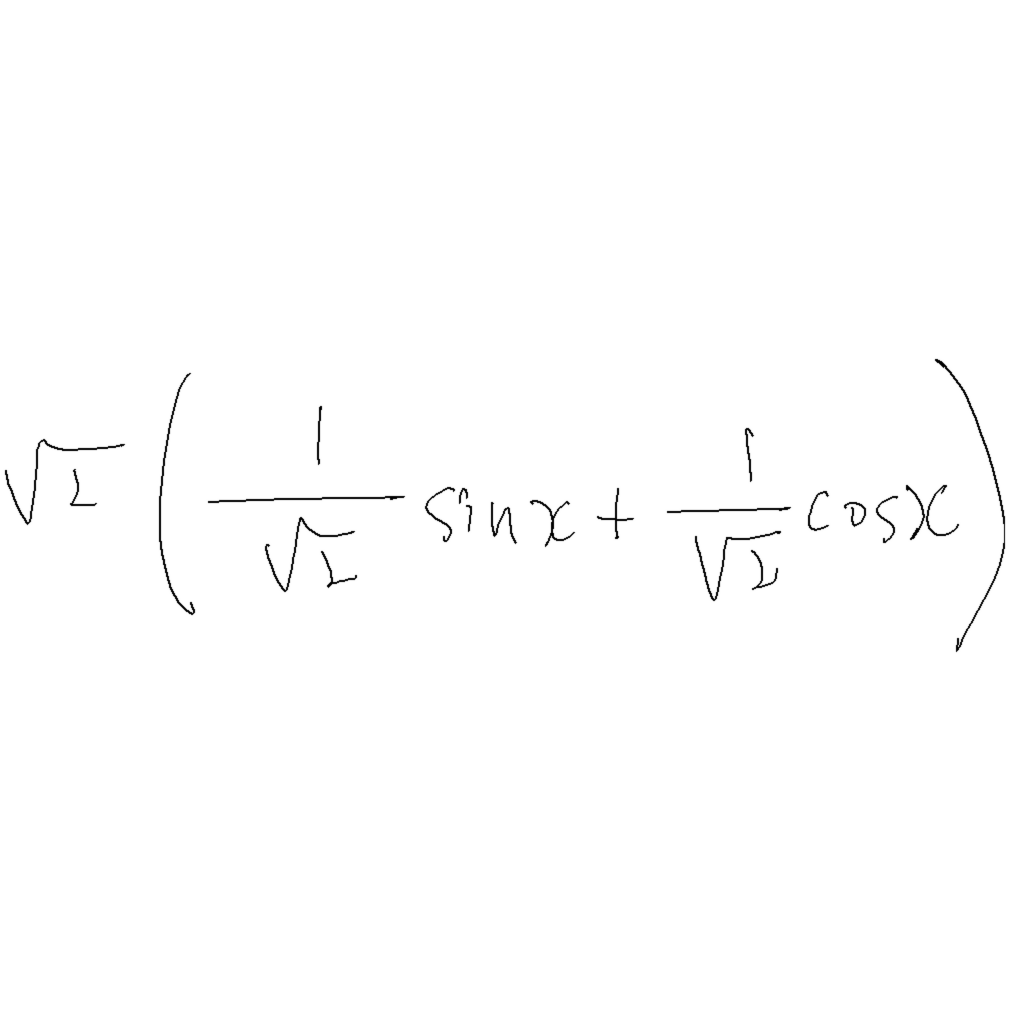 √2 ( 1/√2 sinx + 1/√2 cosx )